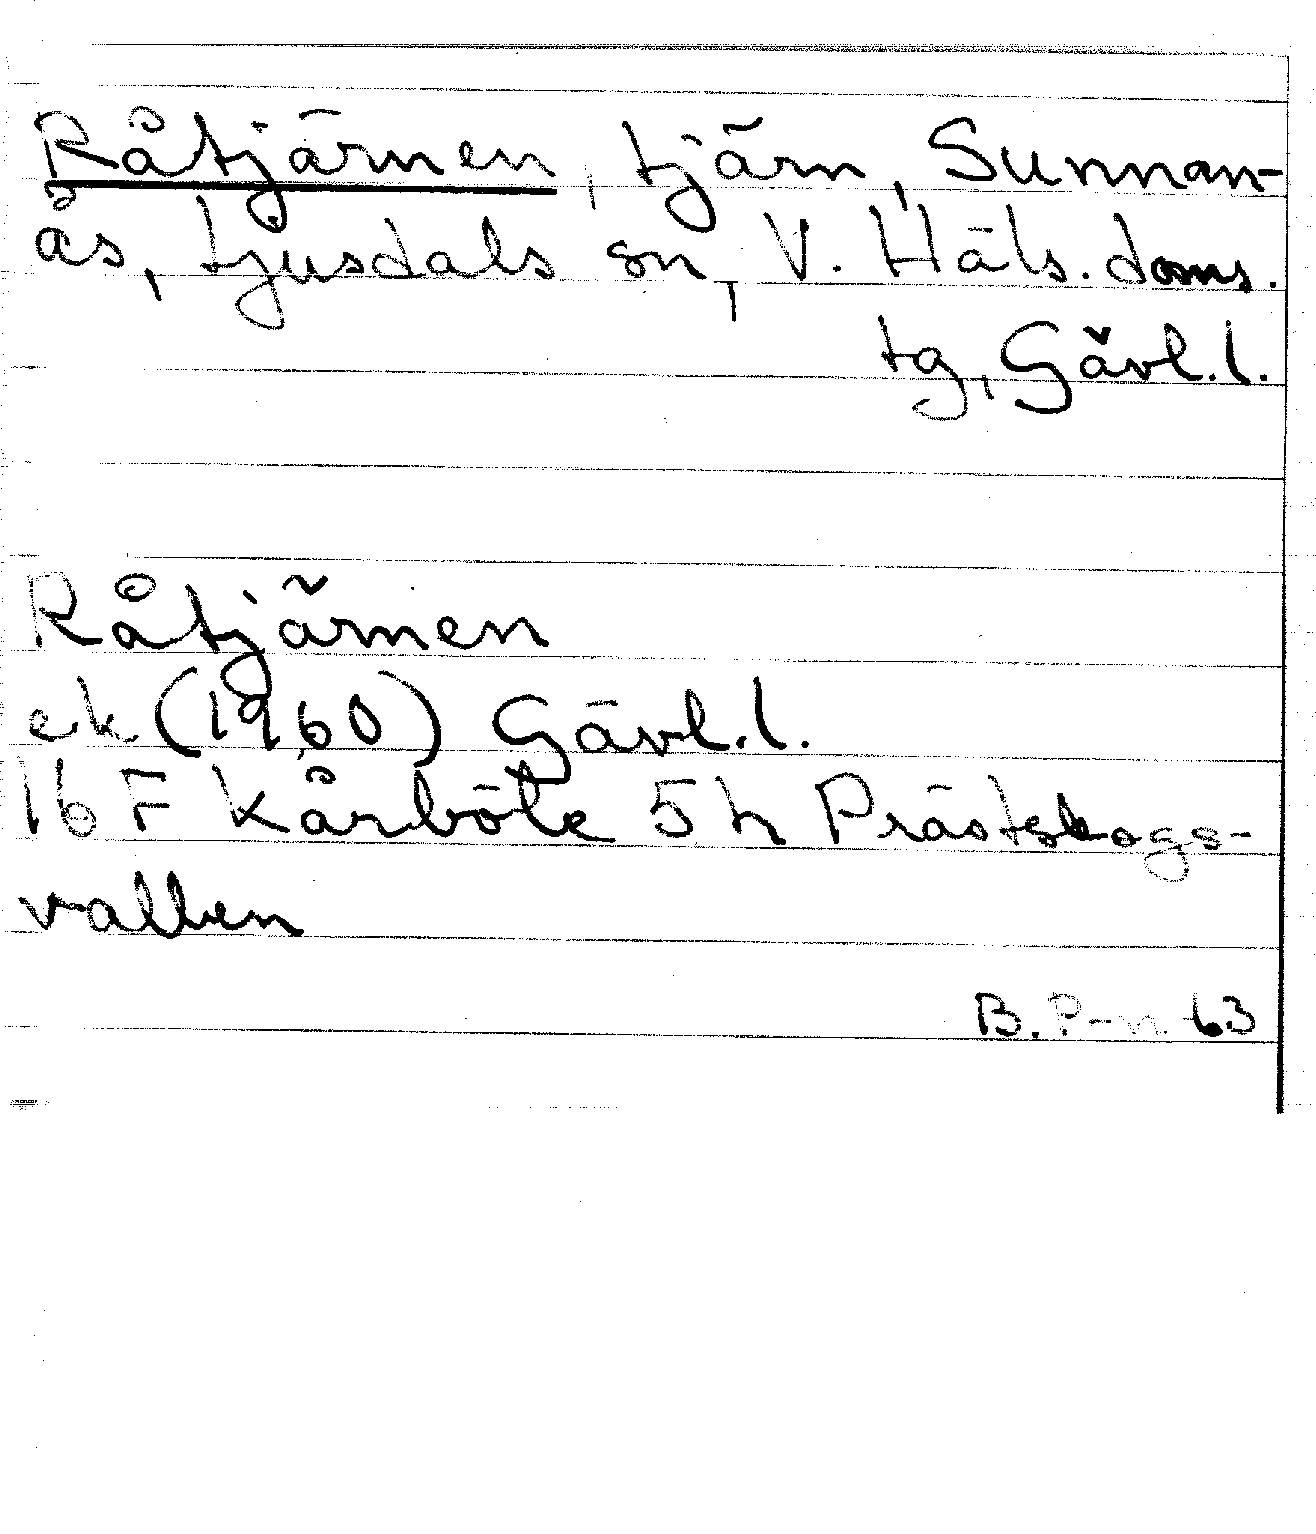 Råtjärnen, tjärn, Sunnan-
ås, Ljusdals sn, V. Häls. doms.
tg, Gävl.l.
Råtjärnen
ek (1960) Gävl.l.
16 F Kårböle 5 h Prästskogs-
vallen
B. P-n. 63